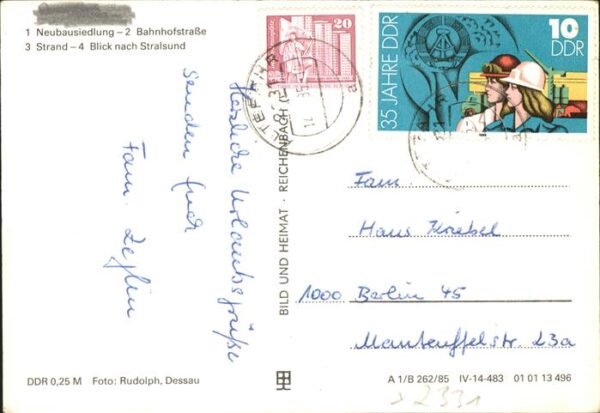 1 Neubausiedlung – 2 Bahnhofstraße
3 Strand – 4 Blick nach Stralsund
Herzliche Urlaubsgrüße
senden Euch
Fam. Zeplin
DDR 0,25 M Foto: Rudolph, Dessau
BILD UND HEIMAT · REICHENBACH (
20
35 JAHRE DDR
10
DDR
ALTEFÄHR
Fam.
Hans Knebel
1000 Berlin 45
Manteuffelstr. 23a
A 1/B 262/85 IV-14-483 01 01 13 496